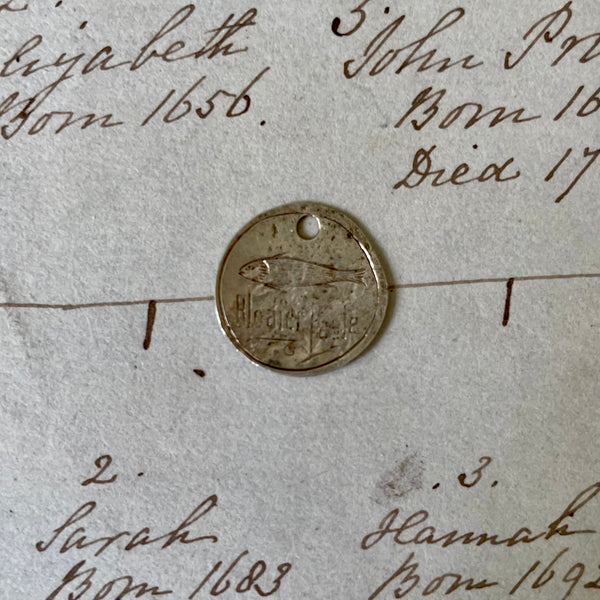 2.
Elizabeth
Born 1656.
3.
John
Born
Died
Bloater Paste
2.
Sarah
Born 1683
3.
Hannah
Born